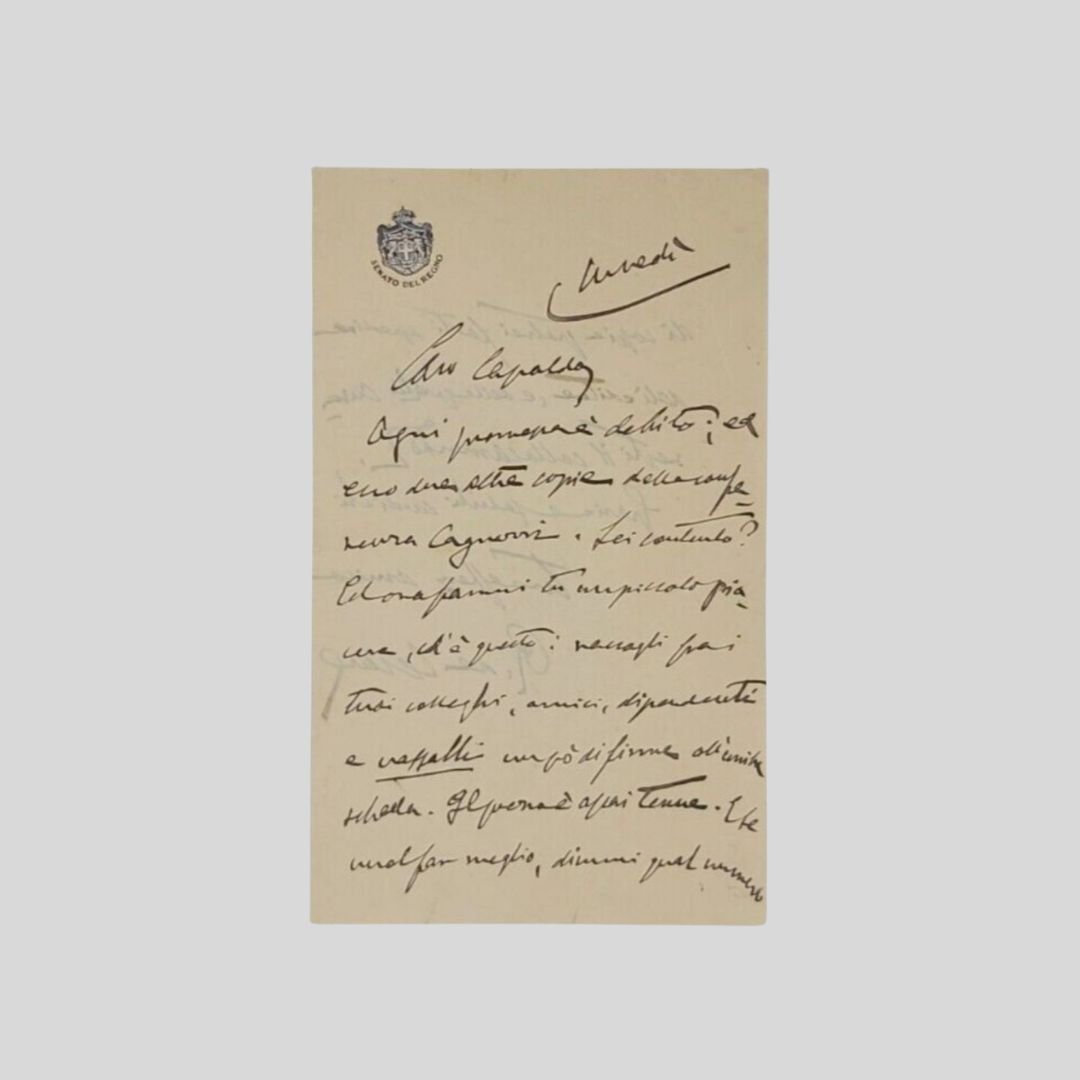 SENATO DEL REGNO
Caro Capaldo,
Ogni promessa è debito; ed
ecco due altre copie della confe-
renza Cagnovic. Sei contento?
Ed ora fammi tu un piccolo pia-
cere, ed è questo: raccogli fra i
tuoi colleghi, amici, dipendenti
e vassalli un pò di firme all'unita
scheda. Il prezzo è assai tenue. E se
vuol far meglio, dimmi qual numero